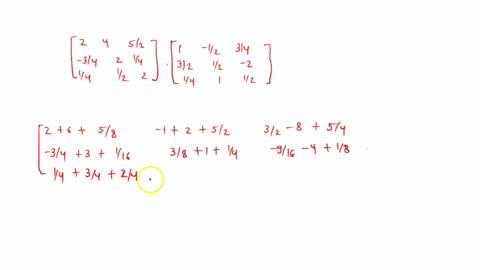 [2 4 5/2
-3/4 2 1/4
1/4 1/2 2] . [1 -1/2 3/4
3/2 1/2 -2
1/4 1 1/2]
[2 + 6 + 5/8 -1 + 2 + 5/2 3/2 - 8 + 5/4
-3/4 + 3 + 1/16 3/8 + 1 + 1/4 -9/16 - 4 + 1/8
1/4 + 3/4 + 2/4